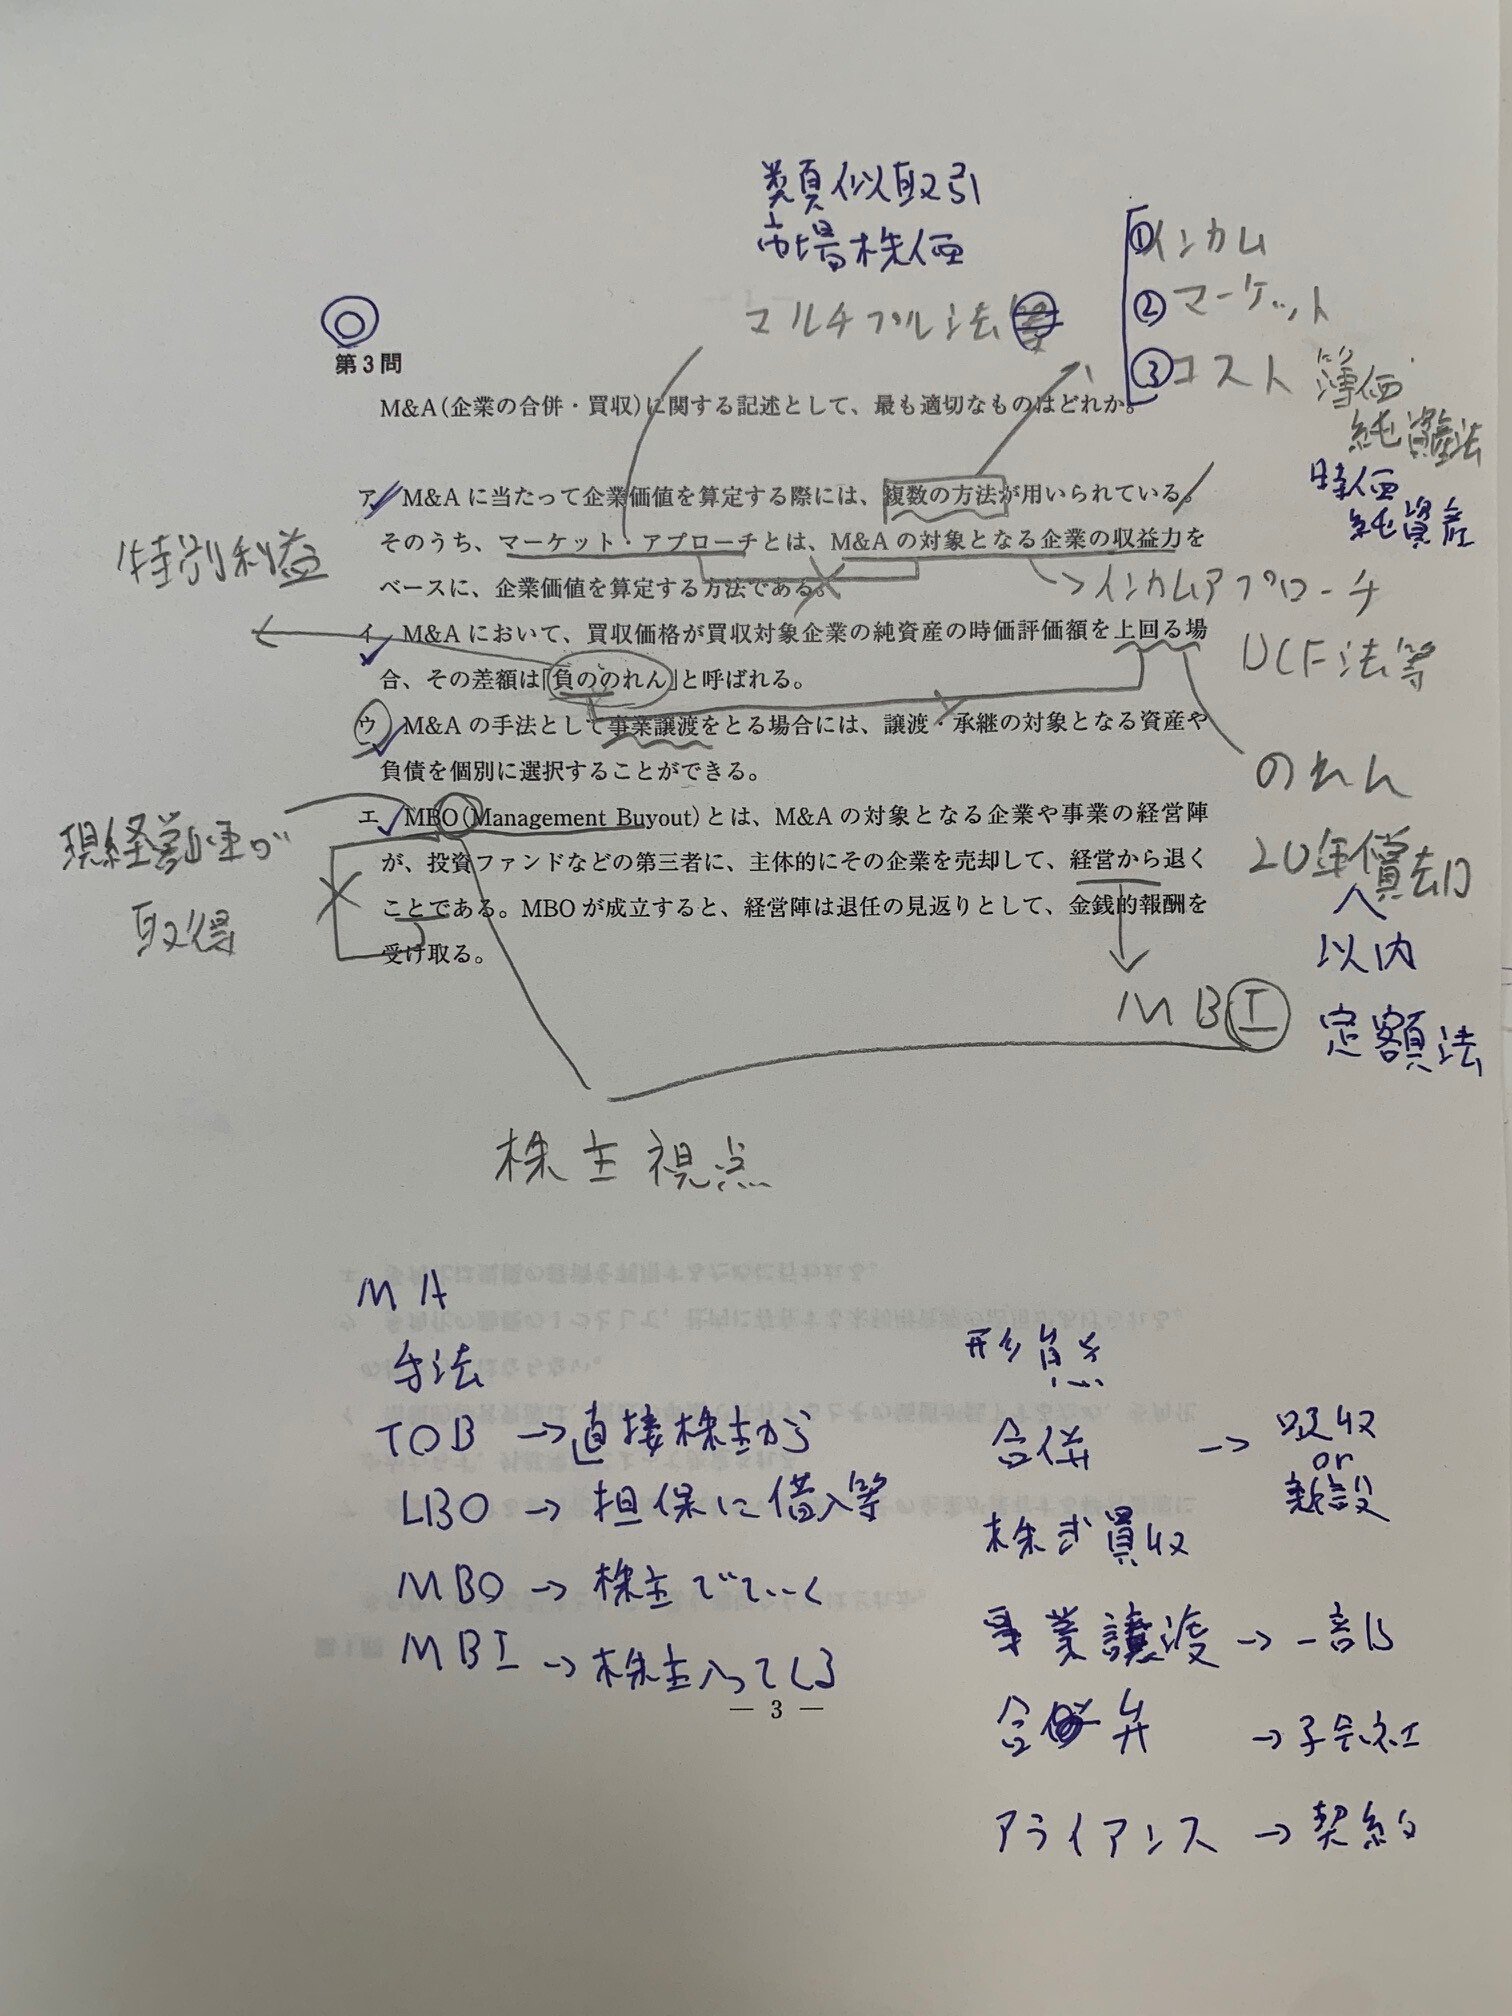 類似取引
市場株価
マルチプル法等
①インカム
②マーケット
③コスト 簿価
純資産法
時価
純資産
第3問
M&A(企業の合併・買収)に関する記述として、最も適切なものはどれか。
ア M&Aに当たって企業価値を算定する際には、複数の方法が用いられている。
そのうち、マーケット・アプローチとは、M&Aの対象となる企業の収益力を
ベースに、企業価値を算定する方法である。
インカムアプローチ
DCF法等
特別利益
イ M&Aにおいて、買収価格が買収対象企業の純資産の時価評価額を上回る場
合、その差額は「負ののれん」と呼ばれる。
ウ M&Aの手法として事業譲渡をとる場合には、譲渡・承継の対象となる資産や
負債を個別に選択することができる。
のれん
20年償却
以内
定額法
エ MBO(Management Buyout)とは、M&Aの対象となる企業や事業の経営陣
が、投資ファンドなどの第三者に、主体的にその企業を売却して、経営から退く
ことである。MBOが成立すると、経営陣は退任の見返りとして、金銭的報酬を
受け取る。
現経営陣が
取得
MBI
株主視点
MA
手法
TOB→直接株主から
LBO→担保に借入等
MBO→株主でていく
MBI→株主入ってくる
形態
合併→吸収
or
新設
株式買収
事業譲渡→一部
合弁→子会社
アライアンス→契約
— 3 —